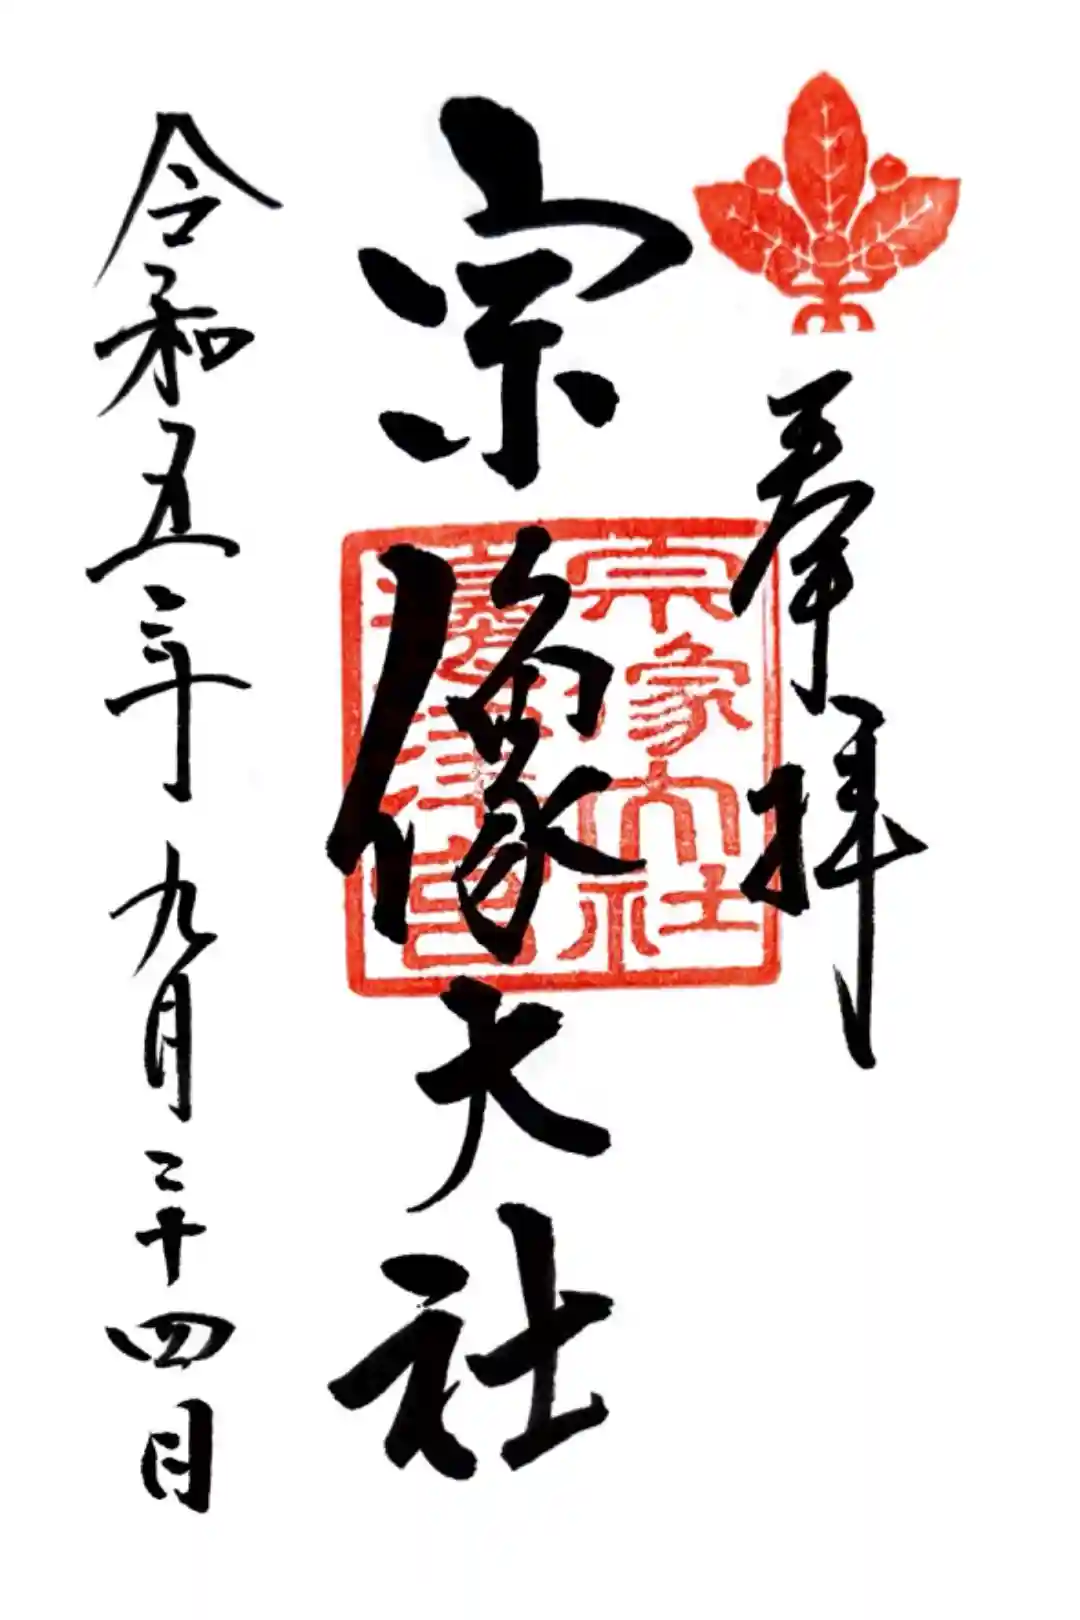 奉拝
宗像大社
宗像大社
邊津宮
令和五年九月二十四日